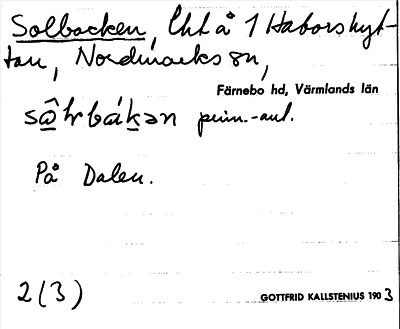 Solbacken, Lht å 1 Haborshyt-
tan, Nordmarks sn,
Färnebo hd, Värmlands län
sâ̱hrbák̠ən prim.-aul.
På Dalen.
2 (3)
GOTTFRID KALLSTENIUS 1903